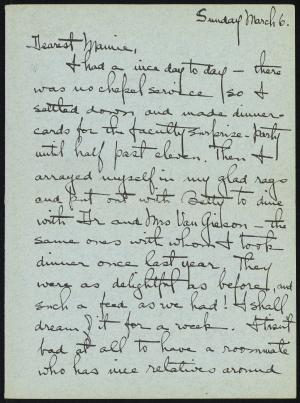 Sunday March 6.
Dearest Mamie,
I had a nice day to day – there
was no chapel service so I
settled down and made dinner-
cards for the faculty surprise-party
until half past eleven. Then I
arrayed myself in my glad rags
and put out with Betty to dine
with Dr and Mrs Van Gieson – the
same ones with whom I took
dinner once last year. They
were as delightful as before, and
such a feed as we had! I shall
dream of it for a week. It isn't
bad at all to have a roommate
who has nice relatives around